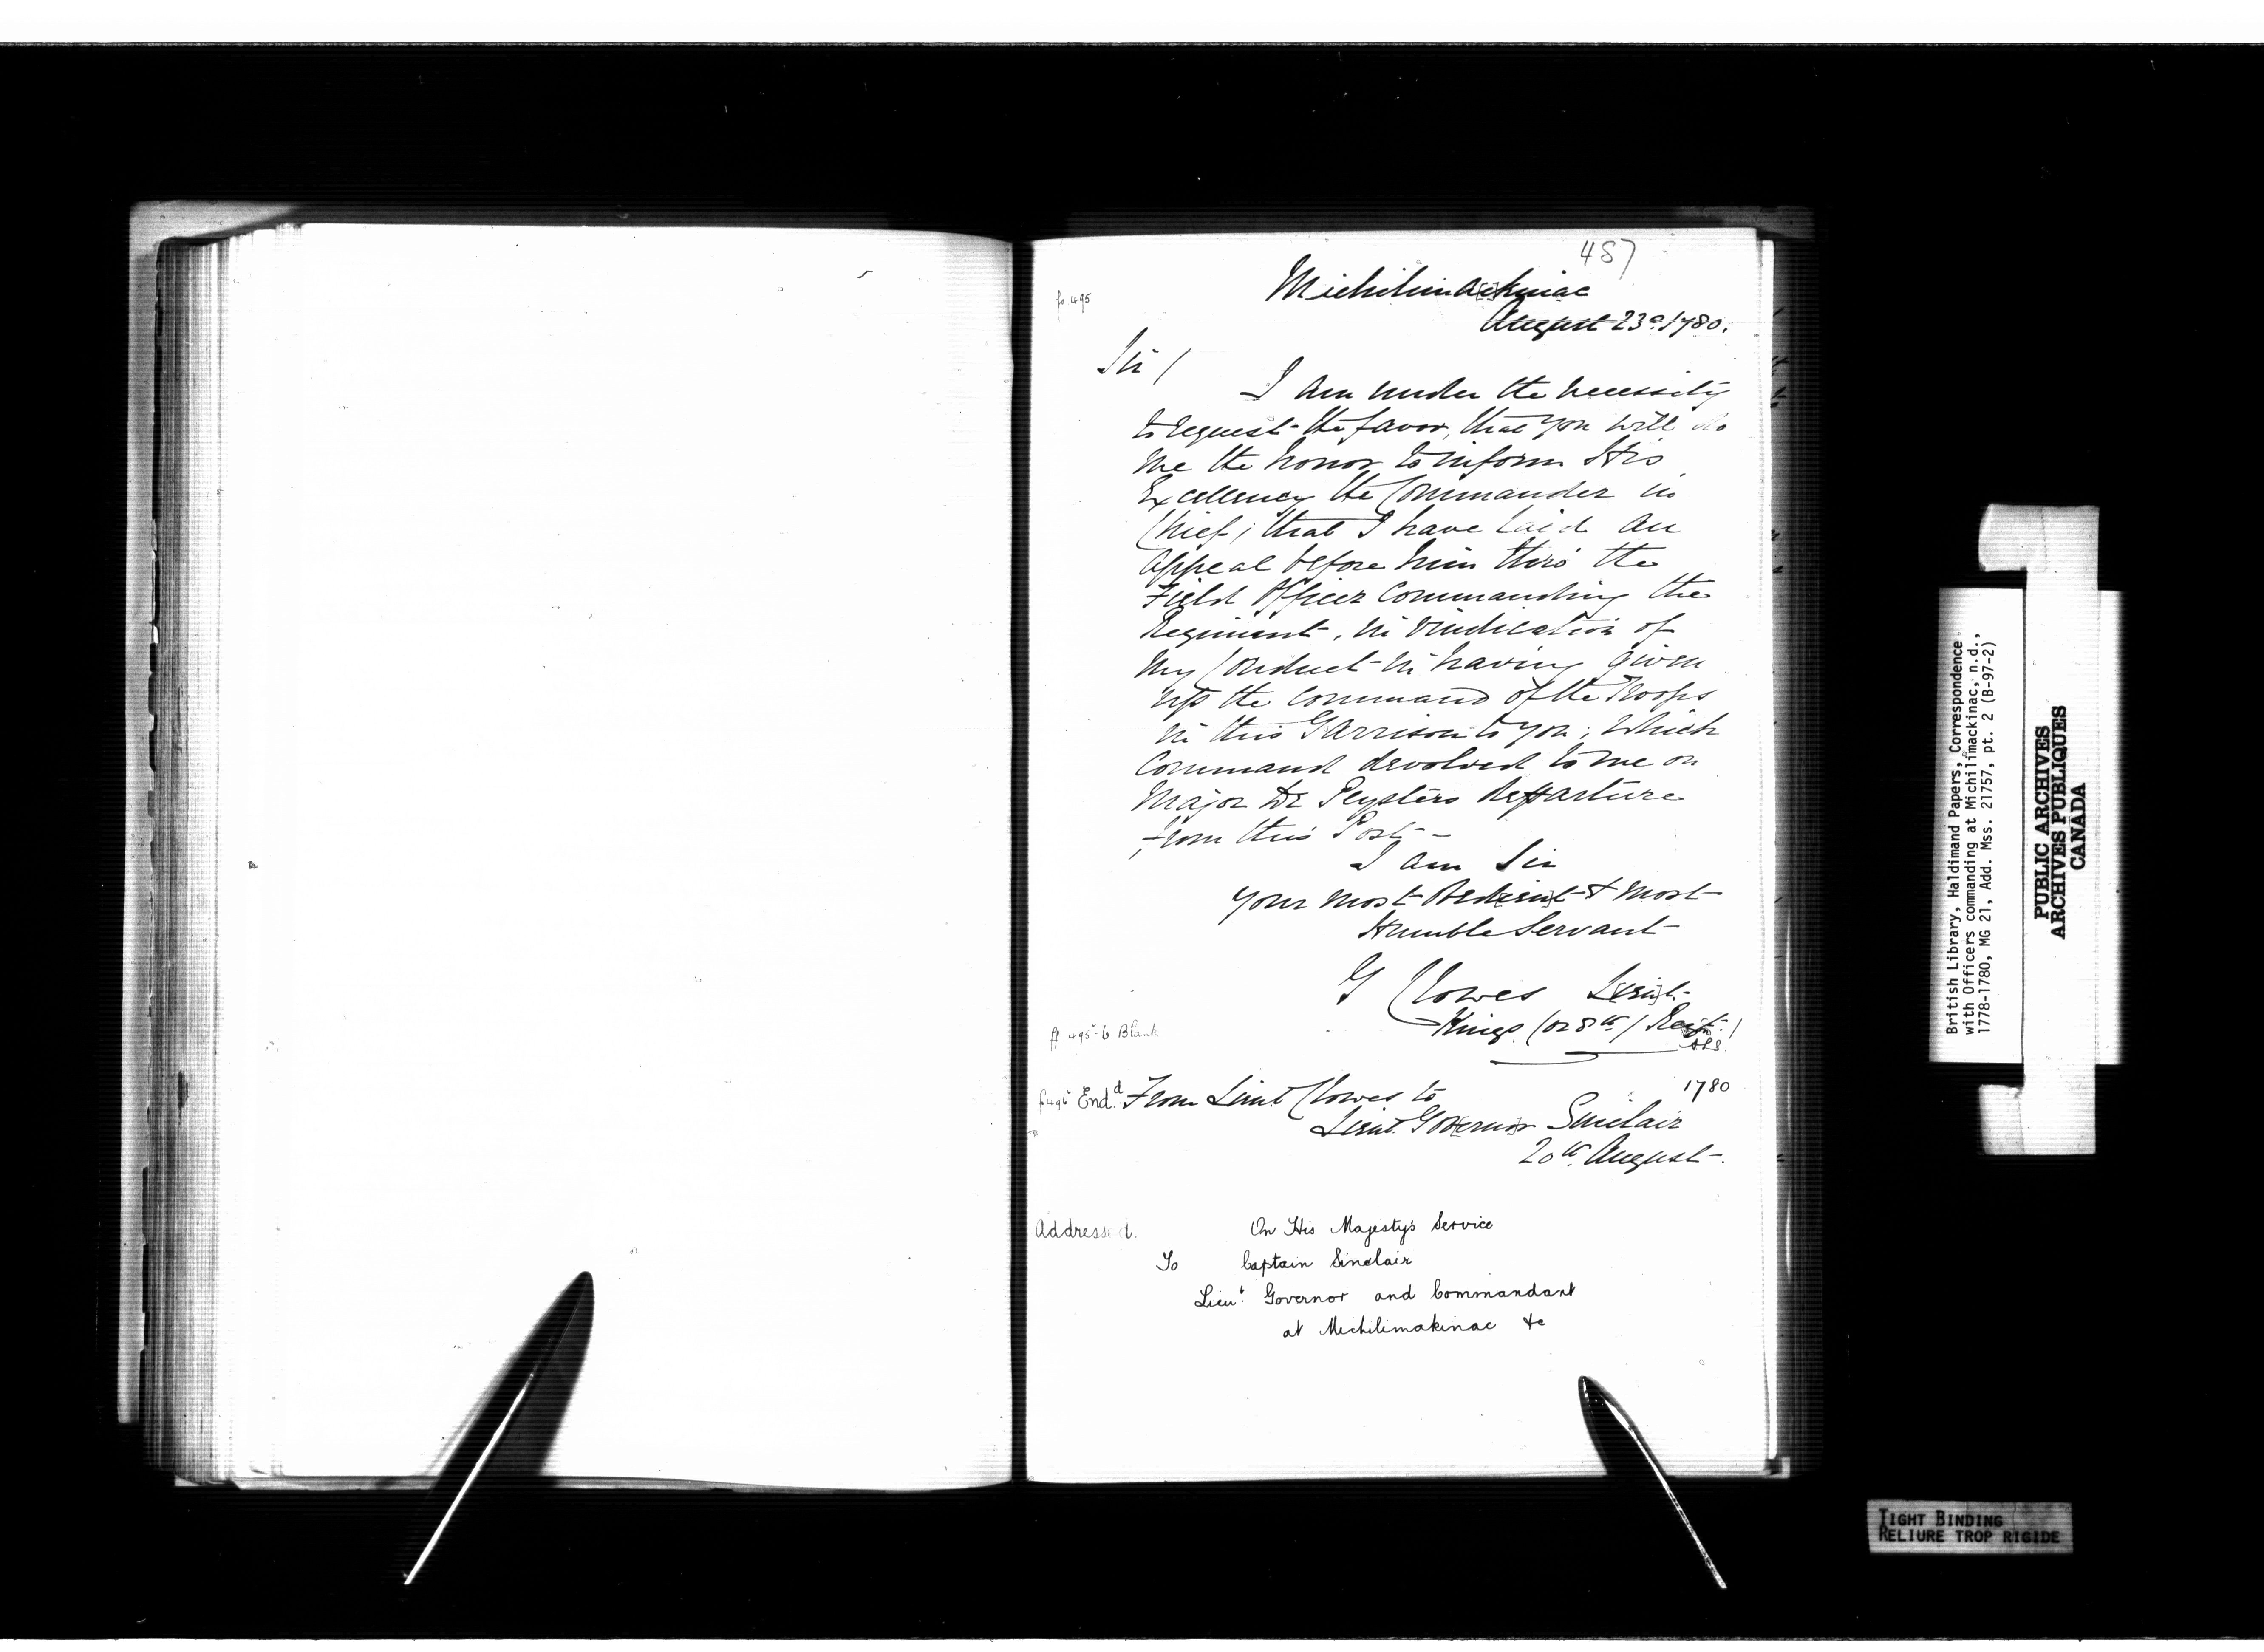 487
fo 495
Michilimackinac
August 23d. 1780.
Sir /
I am under the necessity
to request the favor, that you will do
me the honor to inform His
Excellency the Commander in
Chief; that I have laid an
Appeal before him thro' the
Field Officer Commanding the
Regiment, in vindication of
My Conduct in having given
up the command of the Troops
in this Garrison to you; which
Command devolved to me on
Major De Peysters Departure
from this Post --
I am Sir
Your most Obedient & most
Humble Servant
G Clowes Lieut.
Kings (or 8th) Regt.
A.L.S.
ff 495-6 Blank
1780
End.d From Lieut Clowes to
Lieut. Governor Sinclair
20th. August-.
Addressed.
On His Majesty's Service
To Captain Sinclair
Lieut. Governor and Commandant
at Michilimakinac &c
British Library, Haldimand Papers, Correspondence
with Officers commanding at Michilimackinac, n.d.,
1778-1780, MG 21, Add. Mss. 21757, pt. 2 (B-97-2)
PUBLIC ARCHIVES
ARCHIVES PUBLIQUES
CANADA
TIGHT BINDING
RELIURE TROP RIGIDE